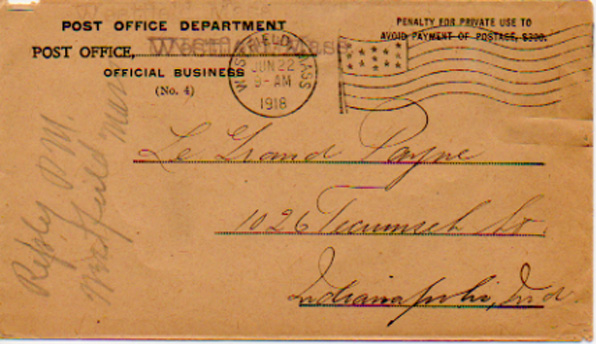 Westfield, Mass
POST OFFICE DEPARTMENT
POST OFFICE, Westfield, Mass
OFFICIAL BUSINESS
(No. 4)
PENALTY FOR PRIVATE USE TO
AVOID PAYMENT OF POSTAGE, $300.
WESTFIELD, MASS
JUN 22
9-AM
1918
Le Grand Payne
1026 Tecumseh St.
Indianapolis, Ind
Reply P.M.
Westfield Mass